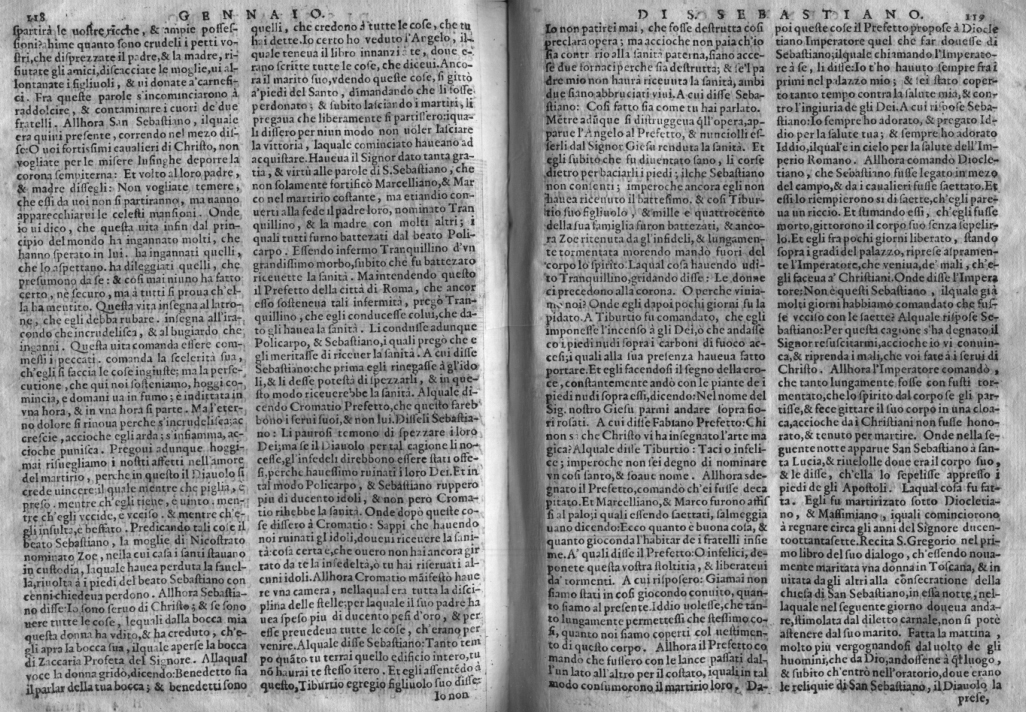 118 GENNAIO.
spartirà le uostre ricche, & ampie possessioni?
ahime quanto sono crudeli i petti vostri,
che disprezzate il padre, & la madre, rifiutate
gli amici, discacciate le moglie, ui allontanate
i figliuoli, & ui donate a' carnefici.
Fra queste parole s'incominciorono à
raddolcire, & contaminare i cuori de' due
fratelli. Allhora San Sebastiano, ilquale
era quini presente, correndo nel mezo disse:
O uoi fortissimi caualieri di Christo, non
vogliate per le misere lusinghe deporre la
corona sempiterna: Et volto al loro padre,
& madre dissegli: Non vogliate temere,
che essi da uoi non si partiranno, ma uanno
apparecchiarui le celesti mansioni. Onde
io ui dico, che questa uita infin dal principio
del mondo ha ingannato molti, che
hanno sperato in lui. ha ingannati quelli,
che lo aspettano. ha dileggiati quelli, che
presumono da se: & cosi mai niuno ha fatto
certo, ne securo, ma à tutti si proua ch'ella
ha mentito. Questa vita insegna al latrone,
che egli debba rubare. insegna all'iracondo
che incrudelisca, & al bugiardo che
inganni. Questa uita comanda essere commessi
i peccati. comanda la scelerità sua,
ch'egli si faccia le cose ingiuste; ma la persecutione,
che qui noi sosteniamo, hoggi comincia,
e domani ua in fumo; e indittata in
vna hora, & in vna hora si parte. Ma l'eterno
dolore si rinoua perche s'incrudelisca: accrescie,
accioche egli arda; s'infiamma, accioche
punisca. Pregoui adunque hoggimai
risuegliamo i nostri affetti nell'amore
del martirio, perche in questo il Diauolo si
crede uincere: il quale mentre che piglia, e
preso. mentre ch'egli tiene, e uinto. mentre
ch'egli vccide, e vcciso. & mentre ch'egli
insulta, e beffato. Predicando tali cose il
beato Sebastiano, la moglie di Nicostrato
nominato Zoe, nella cui casa i santi stauano
in custodia, laquale hauea perduta la fauella,
riuolta à i piedi del beato Sebastiano con
cenni chiedeua perdono. Allhora Sebastiano
disse: Io sono seruo di Christo; & se sono
uere tutte le cose, lequali dalla bocca mia
questa donna ha vdito, & ha creduto, ch'egli
apra la bocca sua, ilquale aperse la bocca
di Zaccaria Profeta del Signore. Allaqual
voce la donna gridò, dicendo: Benedetto sia
il parlar della tua bocca; & benedetti sono
quelli, che credono à tutte le cose, che tu
hai dette. Io certo ho veduto l'Angelo, ilquale
teneua il libro innanzi à te, doue erano
scritte tutte le cose, che diceui. Ancora
il marito suo, vdendo queste cose, si gittò
a' piedi del Santo, dimandando che li fosse
perdonato; & subito lasciando i martiri, li
pregaua che liberamente si partissero: iquali
dissero per niun modo non uoler lasciare
la vittoria, laquale cominciato haueano ad
acquistare. Haueua il Signor dato tanta gratia,
& virtù alle parole di S. Sebastiano, che
non solamente fortificò Marcelliano, & Marco
nel martirio costante, ma etiandio conuerti
alla fede il padre loro, nominato Tranquillino,
& la madre con molti altri; i
quali tutti furno battezati dal beato Policarpo.
Essendo infermo Tranquillino d'vn
grandissimo morbo, subito che fu battezato
riceuette la sanità. Ma intendendo questo
il Prefetto della città di Roma, che ancor
esso sosteneua tali infermità, pregò Tranquillino,
che egli conducesse colui, che dato
gli haueua la sanità. Li condusse adunque
Policarpo, & Sebastiano, i quali pregò che e
gli meritasse di riceuer la sanità. A cui disse
Sebastiano: che prima egli rinegasse à gl'idoli,
& li desse potestà di spezzarli, & in questo
modo riceuerebbe la sanità. Alquale dicendo
Cromatio Prefetto, che questo farebbono
i serui suoi, & non lui. Disseli Sebastiano:
I paurosi temono di spezzare i loro
Dei; ma se il Diauolo per tal cagione li nocesse,
gl'infedeli direbbono essere stati offesi,
perche hauessimo ruinati i loro Dei. Et in
tal modo Policarpo, & Sebastiano ruppero
piu di ducento idoli, & non però Cromatio
rihebbe la sanità. Onde dopò queste cose
dissero à Cromatio: Sappi che hauendo
noi ruinati gl'idoli, doueui riceuere la sanità:
cosa certa e, che ouero non hai ancora gittato
da te la infedeltà, ò tu hai riseruati alcuni
idoli. Allhora Cromatio manifestò hauere
vna camera, nellaqual era tutta la disciplina
delle stelle: per laquale il suo padre hauea
speso piu di ducento pesi d'oro, & per
esse preuedeua tutte le cose, ch'erano per
venire. Alquale disse Sebastiano: Tanto tempo
quãto tu terrai quello edificio intero, tu
nõ haurai te stesso itero. Et egli assentẽdo à
questo, Tiburtio egregio figliuolo suo disse:
Io non
DI S. SEBASTIANO. 119
Io non patirei mai, che fosse destrutta cosi
preclara opera; ma accioche non paia ch'io
sia contrario alla sanità paterna, siano accese
due fornaci perche sia destrutta; & se'l padre
mio non haurà riceuuta la sanità, ambi
due siano abbruciati viui. A cui disse Sebastiano:
Cosi fatto sia come tu hai parlato.
Mẽtre adũque si distruggeua q̃ll'opera, apparue
l'Angelo al Prefetto, & nunciolli esserli
dal Signor Giesu renduta la sanità. Et
egli subito che fu diuentato sano, li corse
dietro per baciarli i piedi; ilche Sebastiano
non consenti; imperoche ancora egli non
hauea riceuuto il battesimo. & cosi Tiburtio
suo figliuolo, & mille e quattrocento
della sua famiglia furon battezati, & ancora
Zoe ritenuta da gl'infideli, & lungamente
tormentata morendo mandò fuori del
corpo lo spirito. Laqual cosa hauendo udito
Tranquillino, gridando disse: Le donne
ci precedono alla corona. O perche viuiamo
noi? Onde egli dapoi pochi giorni fu lapidato.
A Tiburtio fu comandato, che egli
imponesse l'incenso à gli Dei, o che andasse
co' i piedi nudi sopra i carboni di fuoco accesi;
i quali alla sua presenza haueua fatto
portare. Et egli facendosi il segno della croce,
constantemente andò con le piante de i
piedi nudi sopra essi, dicendo: Nel nome del
Sig. nostro Giesu parmi andare sopra fiori
rosati. A cui disse Fabiano Prefetto: Chi
non sa che Christo vi ha insegnato l'arte magica?
Alquale disse Tiburtio: Taci o infelice;
imperoche non sei degno di nominare
vn cosi santo, & soaue nome. Allhora sdegnato
il Prefetto, comandò ch'ei fusse decapitato.
Et Marcelliano, & Marco furono affissi
al palo; i quali essendo saettati, salmeggiauano
dicendo: Ecco quanto è buona cosa, &
quanto gioconda l'habitar de i fratelli insieme.
A' quali disse il Prefetto: O infelici, deponete
questa vostra stoltitia, & liberateui
da' tormenti. A cui risposero: Giamai non
siamo stati in cosi giocondo conuito, quanto
siamo al presente. Iddio uolesse, che tanto
lungamente permettessi che stessimo cosi,
quanto noi siamo coperti col uestimento
di questo corpo. Allhora il Prefetto comando
che fussero con le lance passati dall'un
lato all'altro per il costato, iquali in tal
modo consumorono il martirio loro. Dapoi
queste cose il Prefetto propose à Diocletiano
Imperatore quel che far douesse di
Sebastiano, ilquale chiamando l'Imperatore
à se, li disse: Io t'ho hauuto sempre fra i
primi nel palazzo mio; & sei stato coperto
tanto tempo contra la salute mia, & contro
l'ingiuria de gli Dei. A cui rispose Sebastiano:
Io sempre ho adorato, & pregato Iddio
per la salute tua; & sempre ho adorato
Iddio, il qual'e in cielo per la salute dell'Imperio
Romano. Allhora comandò Diocletiano,
che Sebastiano fusse legato in mezo
del campo, & da i caualieri fusse saettato. Et
essi lo riempierono si di saette, ch'egli pareua
un riccio. Et stimando essi, ch'egli fusse
morto, gittorono il corpo suo senza sepelirlo.
Et egli fra pochi giorni liberato, stando
sopra i gradi del palazzo, riprese aspramente
l'Imperatore, che veniua, de' mali, ch'egli
faceua a' Christiani. Onde disse l'Imperatore:
Non è questi Sebastiano, ilquale già
molti giorni habbiamo comandato che fusse
vcciso con le saette? Alquale rispose Sebastiano:
Per questa cagione s'ha degnato il
Signor resuscitarmi, accioche io vi conuinca,
& riprenda i mali, che voi fate à i serui di
Christo. Allhora l'Imperatore comandò,
che tanto lungamente fosse con fusti tormentato,
che lo spirito dal corpo se gli partisse,
& fece gittare il suo corpo in una cloaca,
accioche da i Christiani non fusse honorato,
& tenuto per martire. Onde nella seguente
notte apparue San Sebastiano à santa
Lucia, & riuelolle doue era il corpo suo,
& le disse, ch'ella lo sepelisse appresso i
piedi de gli Apostoli. Laqual cosa fu fatta.
Egli fu martirizato sotto Diocletiano,
& Massimiano, iquali cominciorono
à regnare circa gli anni del Signore ducento
ottantasette. Recita S. Gregorio nel primo
libro del suo dialogo, ch'essendo nouamente
maritata vna donna in Toscana, & inuitata
da gli altri alla consecratione della
chiesa di San Sebastiano, in essa notte, nellaquale
nel seguente giorno doueua andare,
stimolata dal diletto carnale, non si potè
astenere dal suo marito. Fatta la mattina,
molto piu vergognandosi dal uolto de gli
huomini, che da Dio, andossene à q̃l luogo,
& subito ch'entrò nell'oratorio, doue erano
le reliquie di San Sebastiano, il Diauolo la
prese,